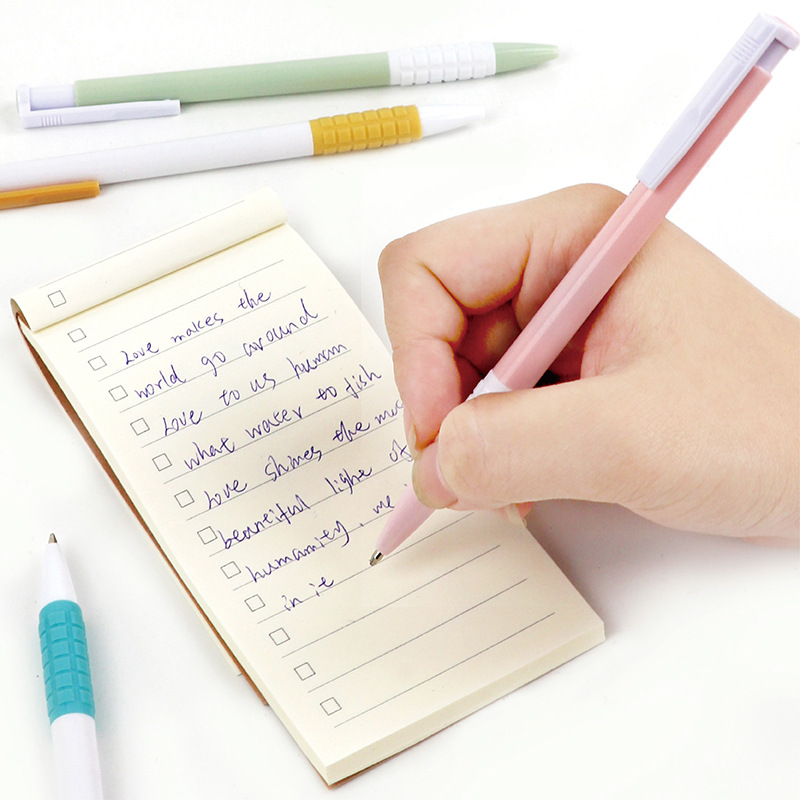 Love makes the
world go around
Love to us human
what water to fish
Love shines the
beautiful light of
humanity, we
in it